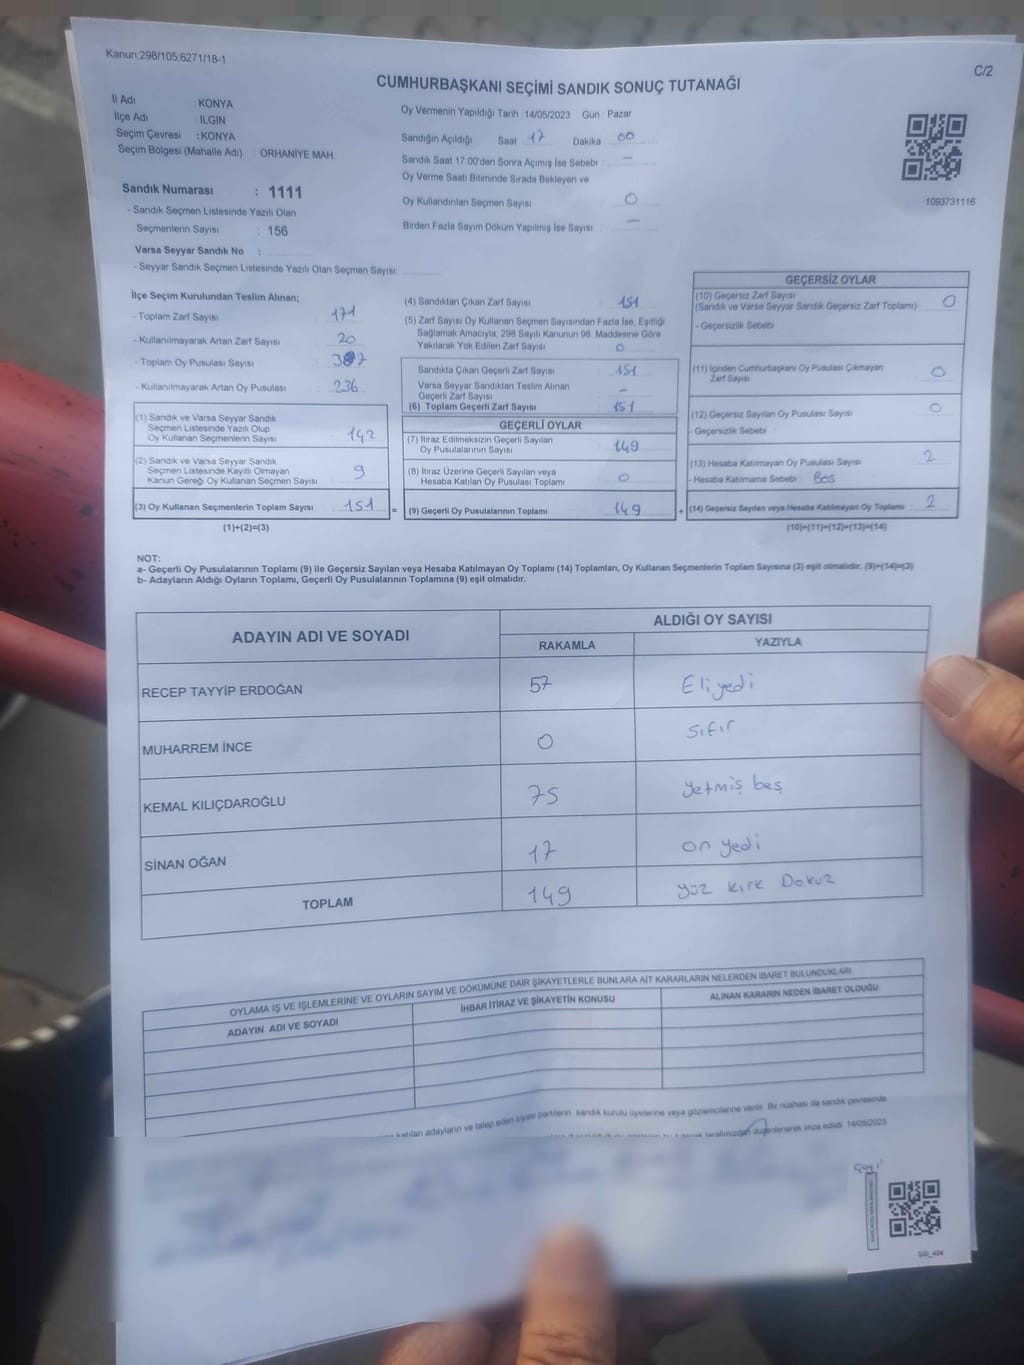 Kanun;298/105;6271/18-1
C/2
CUMHURBAŞKANI SEÇİMİ SANDIK SONUÇ TUTANAĞI
İl Adı : KONYA
İlçe Adı ILGIN
Seçim Çevresi : KONYA
Seçim Bölgesi (Mahalle Adı) : ORHANİYE MAH.
Sandık Numarası : 1111
- Sandık Seçmen Listesinde Yazılı Olan
Seçmenlerin Sayısı : 156
Varsa Seyyar Sandık No :
- Seyyar Sandık Seçmen Listesinde Yazılı Olan Seçmen Sayısı
Oy Vermenin Yapıldığı Tarih : 14/05/2023 Gün : Pazar
Sandığın Açıldığı Saat 17 Dakika : 00
Sandık Saat 17:00'den Sonra Açımış İse Sebebi : —
Oy Verme Saati Bitiminde Sırada Bekleyen ve
Oy Kullandırılan Seçmen Sayısı : 0
Birden Fazla Sayım Döküm Yapılmış İse Sayısı : —
1093731116
İlçe Seçim Kurulundan Teslim Alınan;
- Toplam Zarf Sayısı : 171
- Kullanılmayarak Artan Zarf Sayısı : 20
- Toplam Oy Pusulası Sayısı : 387
- Kullanılmayarak Artan Oy Pusulası : 236
(1) Sandık ve Varsa Seyyar Sandık
Seçmen Listesinde Yazılı Olup
Oy Kullanan Seçmenlerin Sayısı : 142
(2) Sandık ve Varsa Seyyar Sandık
Seçmen Listesinde Kayıtlı Olmayan
Kanun Gereği Oy Kullanan Seçmen Sayısı : 9
(3) Oy Kullanan Seçmenlerin Toplam Sayısı : 151
(1)+(2)=(3)
(4) Sandıktan Çıkan Zarf Sayısı : 151
(5) Zarf Sayısı Oy Kullanan Seçmen Sayısından Fazla İse, Eşitliği
Sağlamak Amacıyla, 298 Sayılı Kanunun 98. Maddesine Göre
Yakılarak Yok Edilen Zarf Sayısı : 0
Sandıkta Çıkan Geçerli Zarf Sayısı : 151
Varsa Seyyar Sandıktan Teslim Alınan
Geçerli Zarf Sayısı : —
(6) Toplam Geçerli Zarf Sayısı : 151
GEÇERLİ OYLAR
(7) İtiraz Edilmeksizin Geçerli Sayılan
Oy Pusulalarının Sayısı : 149
(8) İtiraz Üzerine Geçerli Sayılan veya
Hesaba Katılan Oy Pusulası Toplamı : 0
= (9) Geçerli Oy Pusulalarının Toplamı : 149 +
GEÇERSİZ OYLAR
(10) Geçersiz Zarf Sayısı
(Sandık ve Varsa Seyyar Sandık Geçersiz Zarf Toplamı) : 0
- Geçersizlik Sebebi :
(11) İçinden Cumhurbaşkanı Oy Pusulası Çıkmayan
Zarf Sayısı : 0
(12) Geçersiz Sayılan Oy Pusulası Sayısı : 0
- Geçersizlik Sebebi :
(13) Hesaba Katılmayan Oy Pusulası Sayısı : 2
- Hesaba Katılmama Sebebi : Boş
(14) Geçersiz Sayılan veya Hesaba Katılmayan Oy Toplamı : 2
(10)+(11)+(12)+(13)=(14)
NOT:
a- Geçerli Oy Pusulalarının Toplamı (9) ile Geçersiz Sayılan veya Hesaba Katılmayan Oy Toplamı (14) Toplamları, Oy Kullanan Seçmenlerin Toplam Sayısına (3) eşit olmalıdır. (9)+(14)=(3)
b- Adayların Aldığı Oyların Toplamı, Geçerli Oy Pusulalarının Toplamına (9) eşit olmalıdır.
ADAYIN ADI VE SOYADI ALDIĞI OY SAYISI
RAKAMLA YAZIYLA
RECEP TAYYİP ERDOĞAN 57 Eliyedi
MUHARREM İNCE 0 sıfır
KEMAL KILIÇDAROĞLU 75 yetmiş beş
SİNAN OĞAN 17 on yedi
TOPLAM 149 yüz kırk Dokuz
OYLAMA İŞ VE İŞLEMLERİNE VE OYLARIN SAYIM VE DÖKÜMÜNE DAİR ŞİKAYETLERLE BUNLARA AİT KARARLARIN NELERDEN İBARET BULUNDUKLARI
ADAYIN ADI VE SOYADI İHBAR İTİRAZ VE ŞİKAYETİN KONUSU ALINAN KARARIN NEDEN İBARET OLDUĞU
katılan adayların ve talep eden siyasi partilerin sandık kurulu üyelerine veya gözlemcilerine verilir. Bir nüshası da sandık çevresinde
tarafımızdan düzenlenerek imza edildi. 14/05/2023